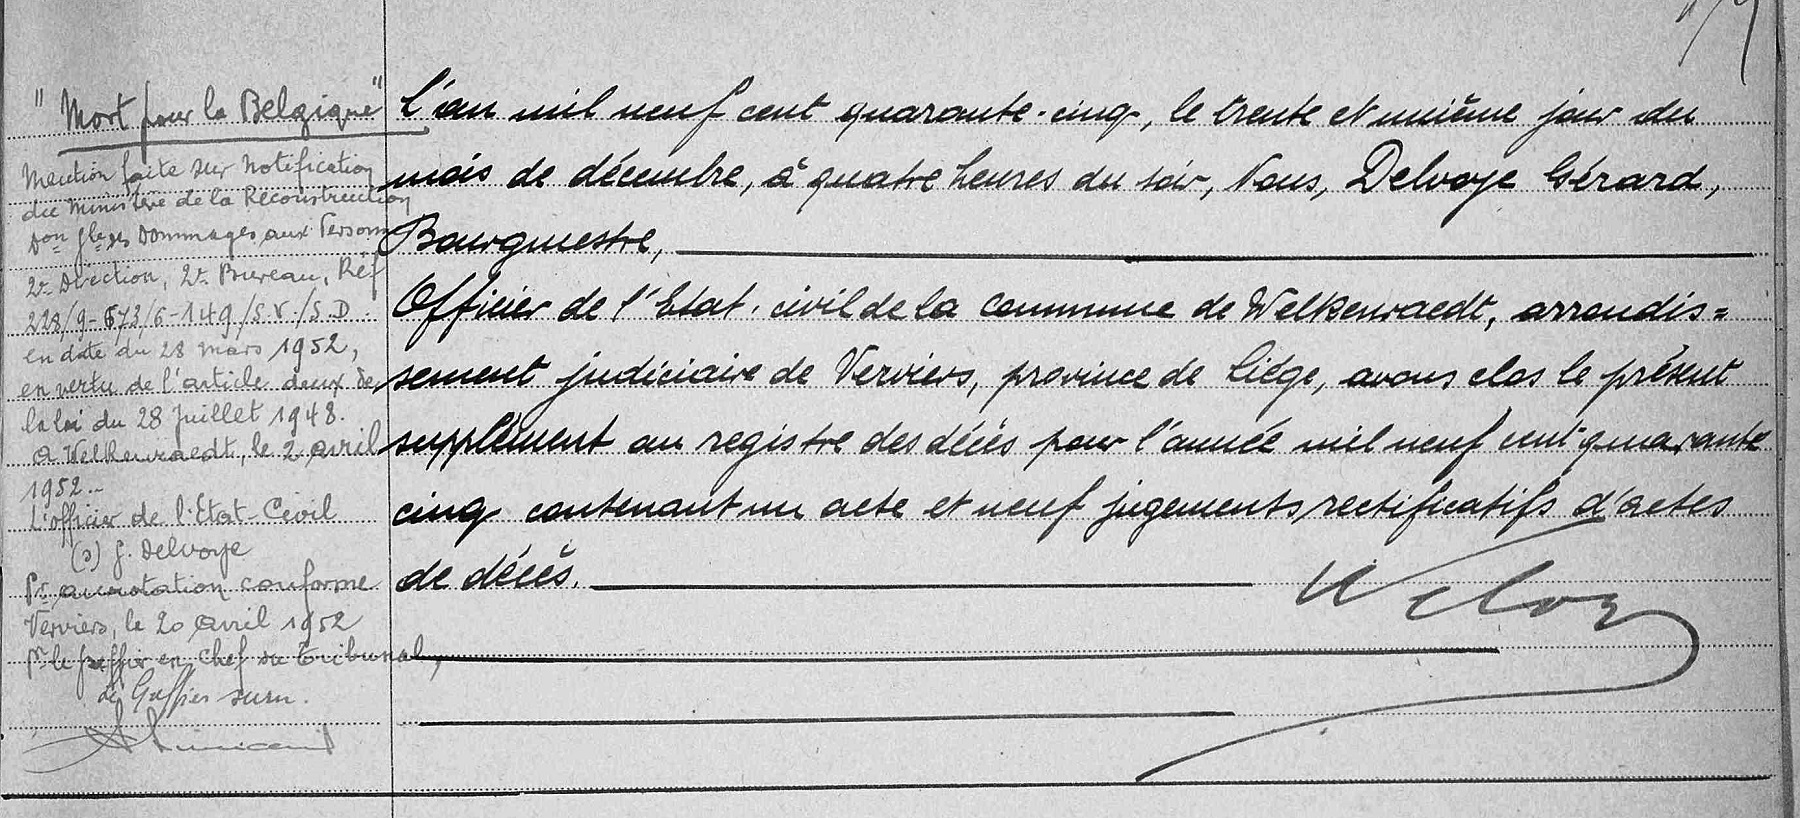 "Mort pour la Belgique"
Mention faite sur notification
du Ministère de la Reconstruction
Don Gle des Dommages aux Person
2e Direction, 2e Bureau, Réf
218/9-673/6-149/S.V./S.D.
en date du 28 mars 1952,
en vertu de l'article deux de
la loi du 28 Juillet 1948.
A Welkenraedt, le 2 avril
1952.-
L'officier de l'Etat Civil
(s) G. Delvoye
Pr annotation conforme
Verviers, le 20 avril 1952
pr le Greffier en chef du tribunal,
Greffier surn.
L'an mil neuf cent quarante-cinq, le trente et unième jour du
mois de décembre, à quatre heures du soir, Nous, Delvoye Gérard,
Bourgmestre,
Officier de l'Etat-civil de la commune de Welkenraedt, arrondis=
sement judiciaire de Verviers, province de Liége, avons clos le présent
supplément au registre des décès pour l'année mil neuf cent quarante
cinq contenant un acte et neuf jugements rectificatifs d'actes
de décès.